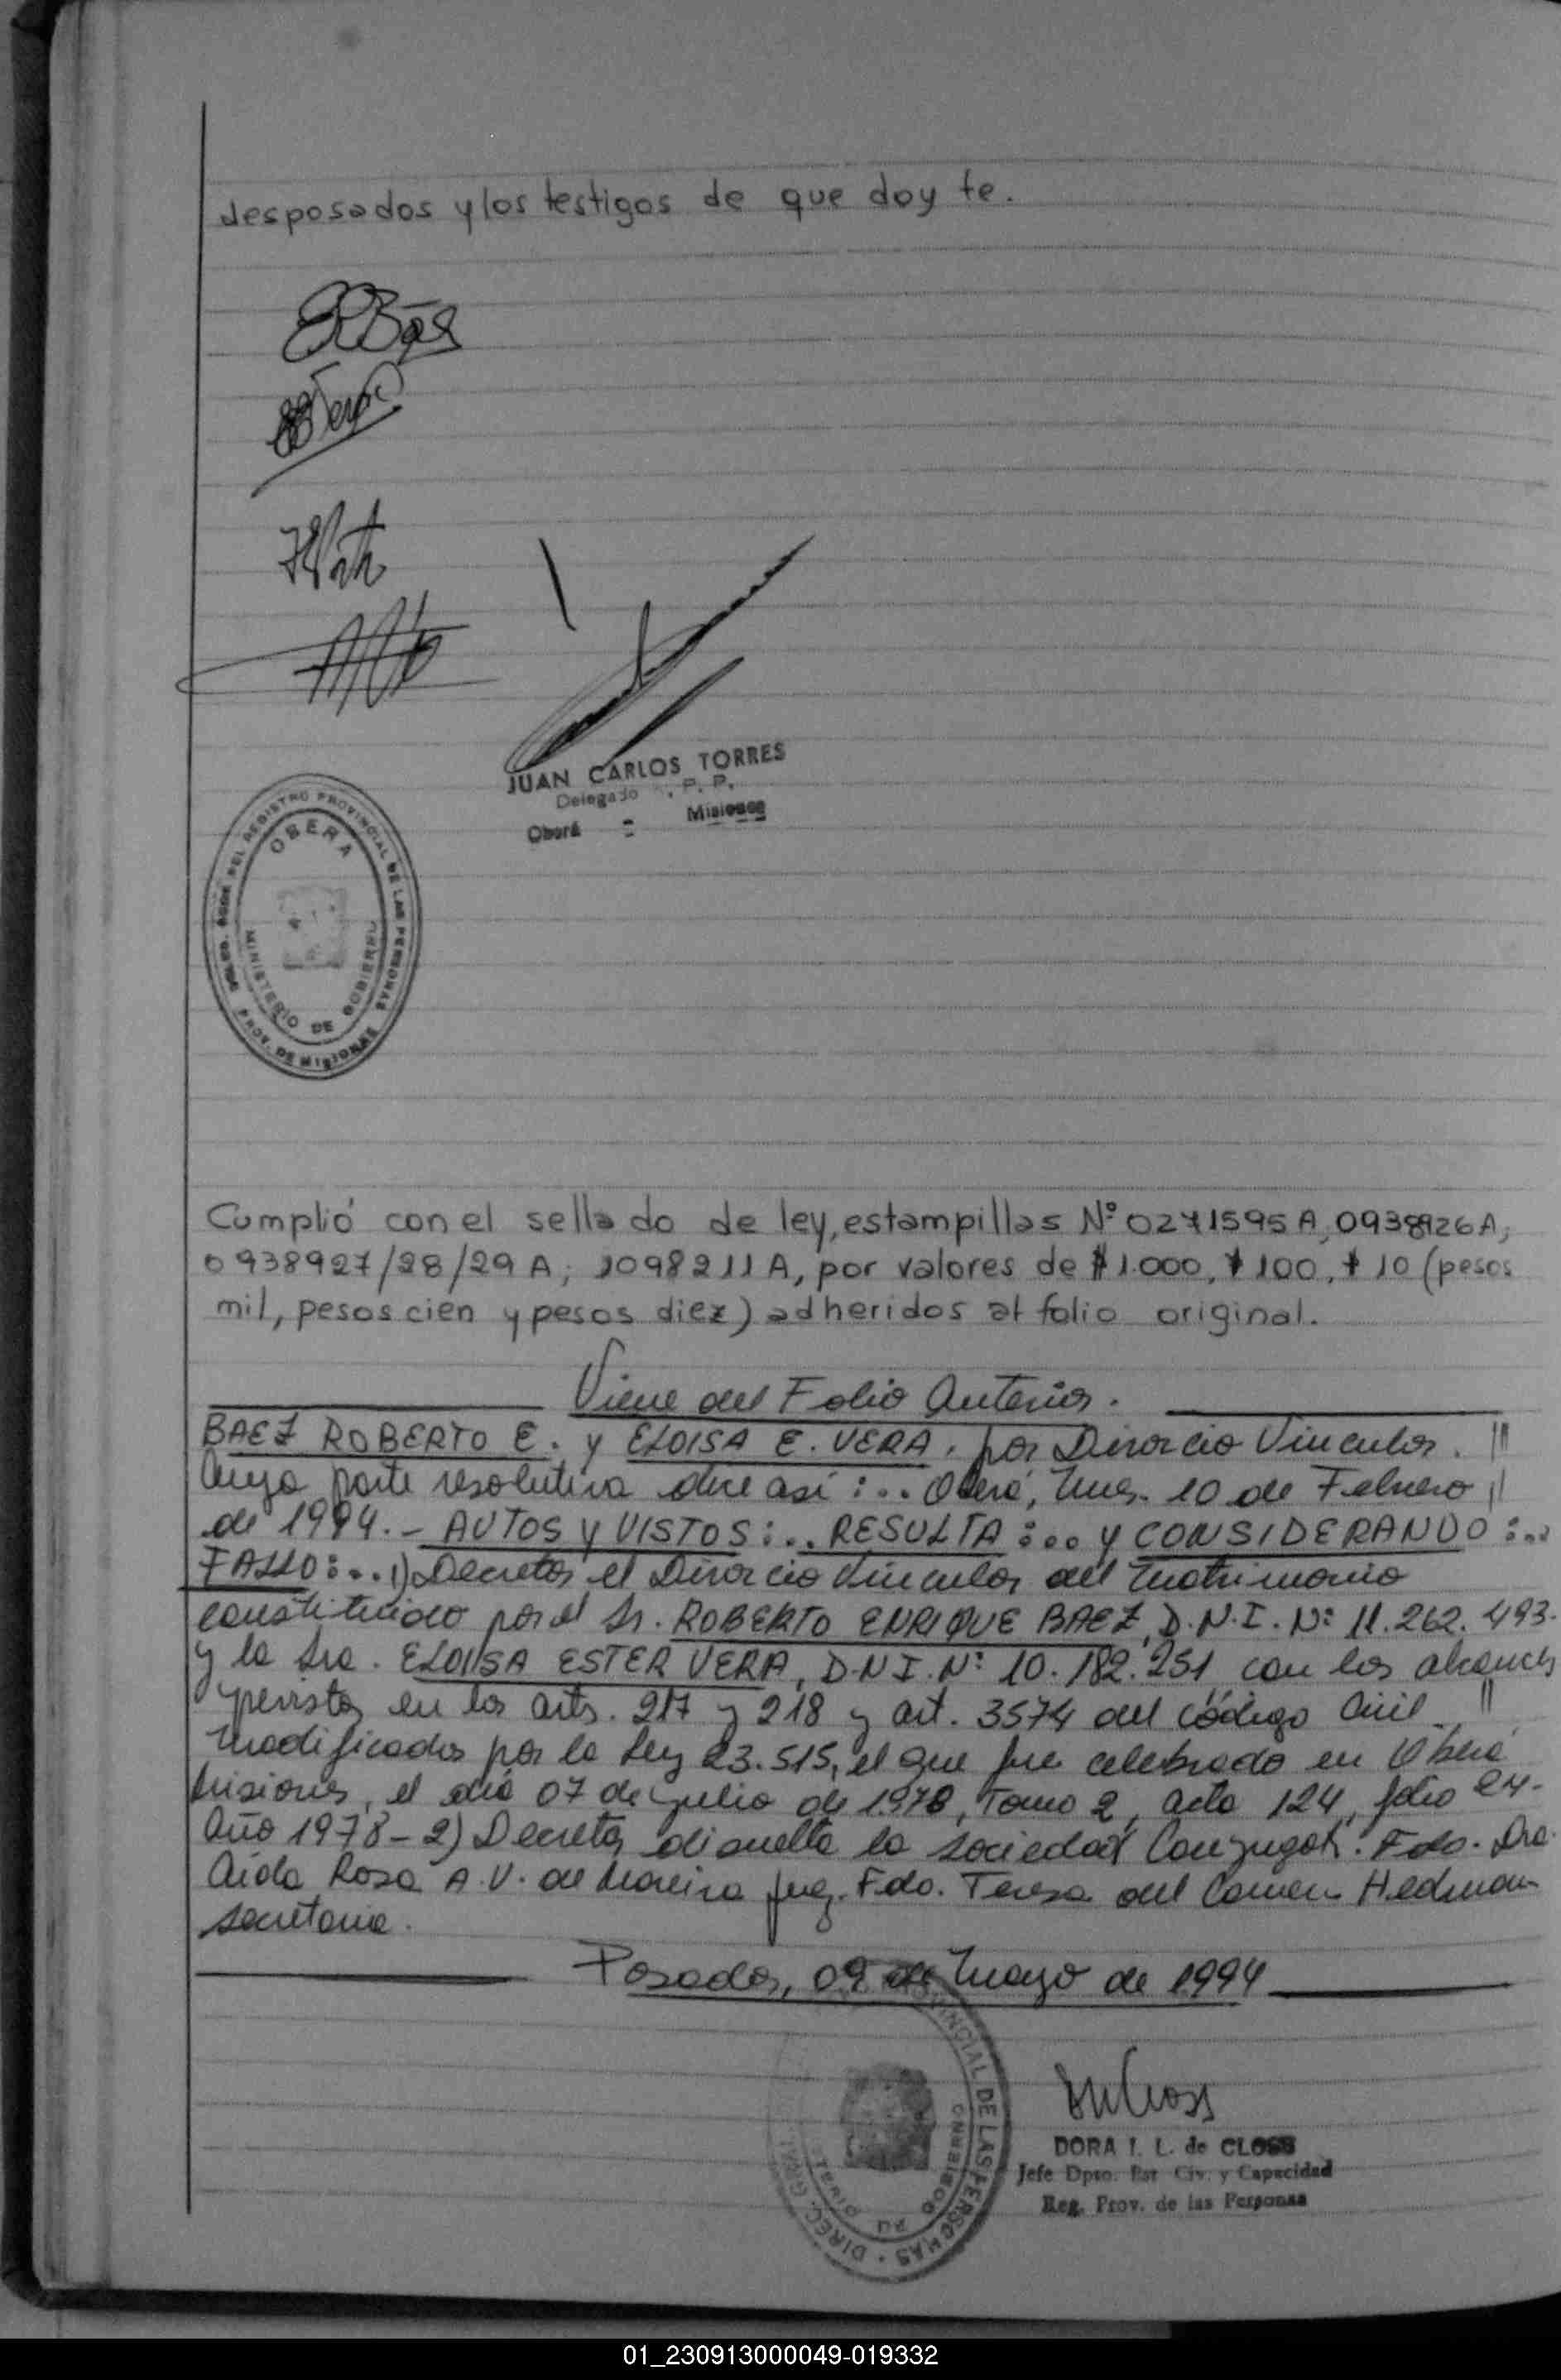 desposados y los testigos de que doy fe.
JUAN CARLOS TORRES
Delegado P. P.
Oberá - Misiones
DELEG. SEDE DEL REGISTRO PROVINCIAL DE LAS PERSONAS
OBERA
MINISTERIO DE GOBIERNO
PROV. DE MISIONES
Cumplió con el sellado de ley, estampillas Nº 0271595 A, 0938926 A,
0938927/28/29 A; 1098211 A, por valores de $ 1.000, $ 100, $ 10 (pesos
mil, pesos cien y pesos diez) adheridos al folio original.
Viene del Folio Anterior.
BAEZ ROBERTO E. y ELOISA E. VERA. por Divorcio Vincular. //
Cuya parte resolutiva dice así:.. Oberá, Mnes. 10 de Febrero //
de 1994.- AUTOS Y VISTOS:.. RESULTA:... y CONSIDERANDO:..
FALLO:... 1) Decretar el Divorcio Vincular del Matrimonio
constituido por el Sr. ROBERTO ENRIQUE BAEZ, D.N.I. Nº 11.262.493.
y la Sra. ELOISA ESTER VERA, D.N.I. Nº 10.182.251 con los alcances
previstos en los arts. 217 y 218 y art. 3574 del código Civil. //
Modificados por la Ley 23.515, el que fue celebrado en Oberá
Misiones, el día 07 de julio de 1978, Tomo 2, acta 124, folio 24-
Año 1978 - 2) Decretar disuelta la sociedad Conyugal. Fdo. Dra.
Aída Rosa A.V. de Moreira Juez. Fdo. Teresa del Carmen Hedman
Secretaria.
Posadas, 09 de Mayo de 1994
PROVINCIAL DE LAS PERSONAS · DIREC. GRAL.
MINISTERIO DE GOBIERNO
DORA I. L. de CLOSS
Jefe Dpto. Est. Civ. y Capacidad
Reg. Prov. de las Personas
01_230913000049-019332